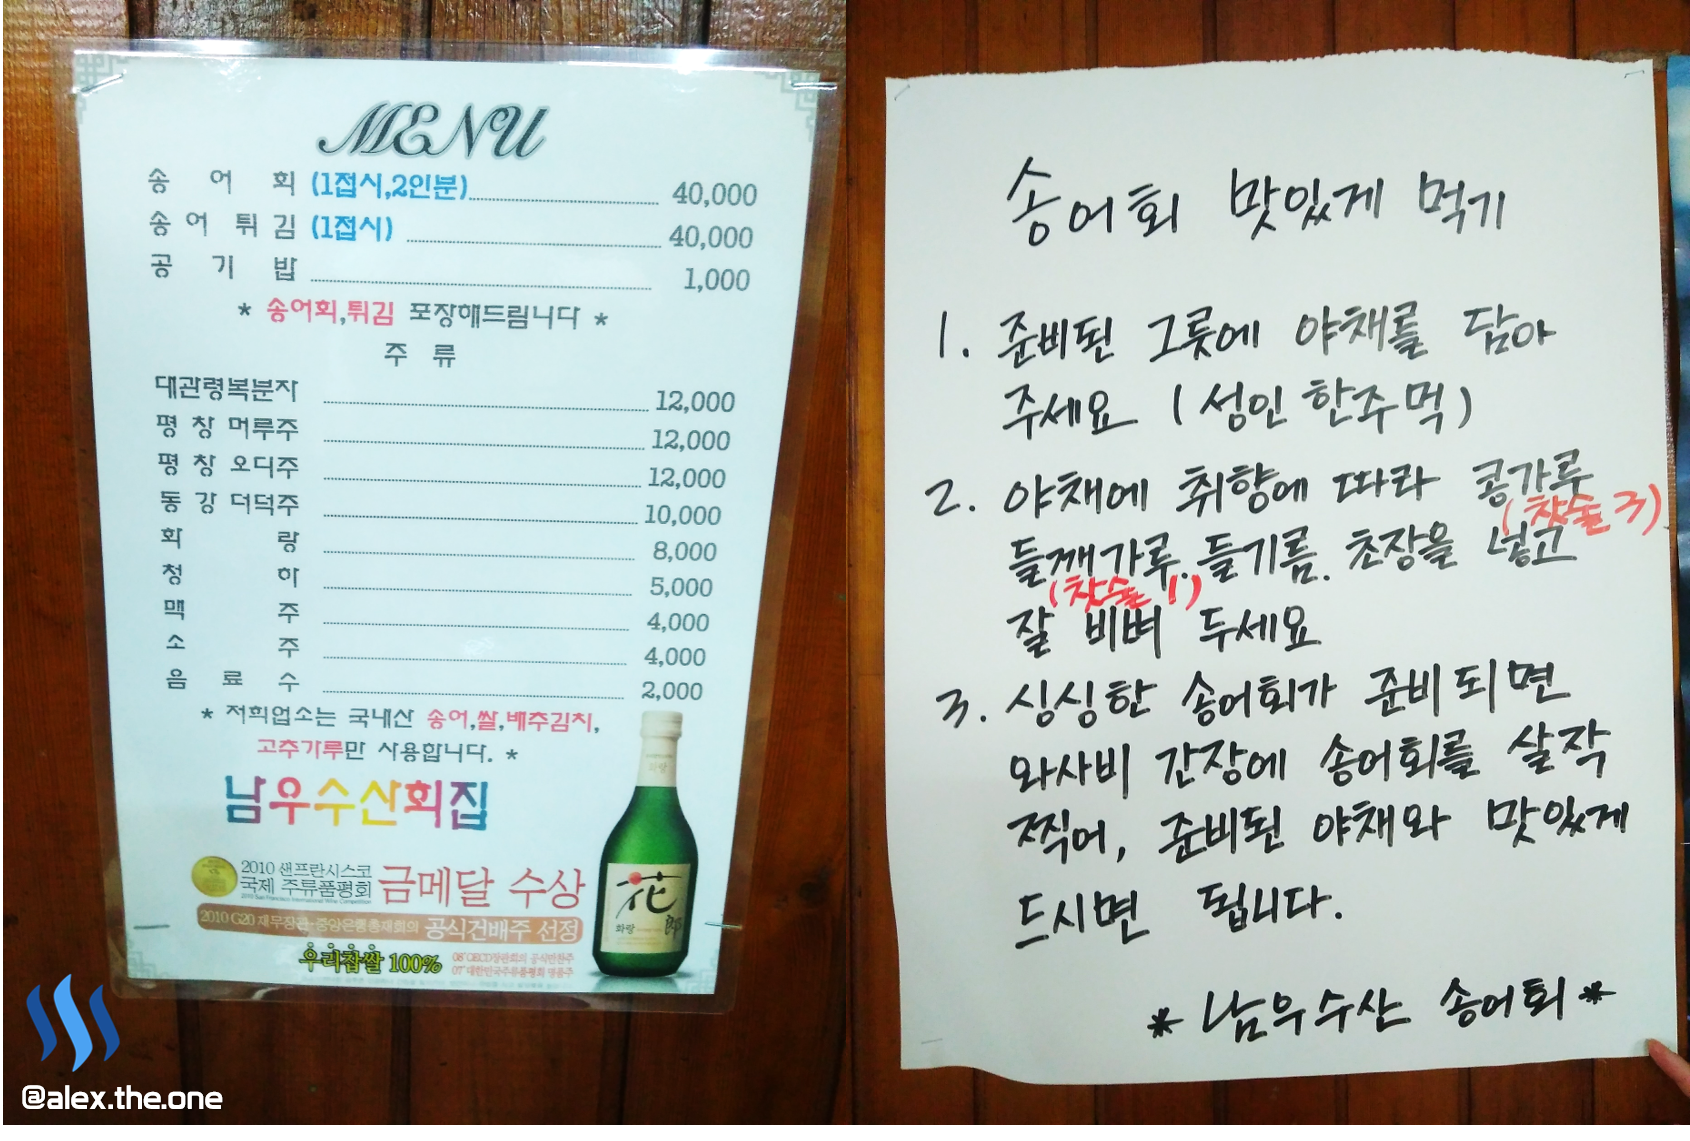 MENU
송어회 (1접시,2인분) 40,000
송어튀김 (1접시) 40,000
공기밥 1,000
* 송어회,튀김 포장해드립니다 *
주 류
대관령복분자 12,000
평창머루주 12,000
평창오디주 12,000
동강더덕주 10,000
화랑 8,000
청하 5,000
맥주 4,000
소주 4,000
음료수 2,000
* 저희업소는 국내산 송어,쌀,배추김치,
고추가루만 사용합니다. *
남우수산회집
2010 샌프란시스코
국제 주류품평회 금메달 수상
2010 San Francisco International Wine Competition
2010 G20 재무장관·중앙은행총재회의 공식건배주 선정
우리찹쌀 100%
08' OECD장관회의 공식만찬주
07' 대한민국주류품평회 명품주
화랑
花
郎
화랑
@alex.the.one
송어회 맛있게 먹기
1. 준비된 그릇에 야채를 담아
주세요 (성인 한주먹)
2. 야채에 취향에 따라 콩가루
(찻술3)
들깨가루. 들기름. 초장을 넣고
(찻술 1)
잘 비벼 두세요
3. 싱싱한 송어회가 준비되면
와사비 간장에 송어회를 살작
찍어, 준비된 야채와 맛있게
드시면 됩니다.
* 남우수산 송어회 *